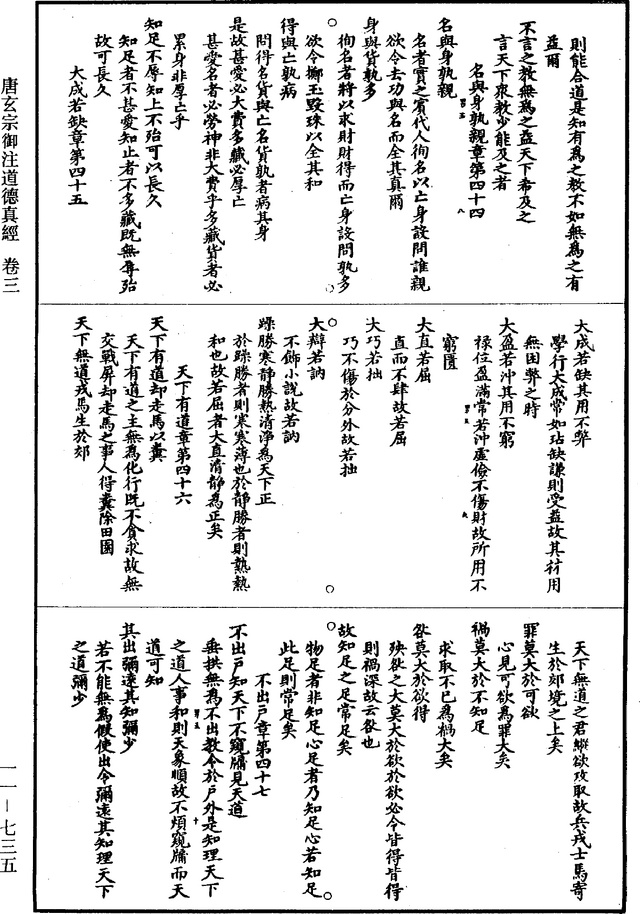 則能合道是知有為之教不如無為之有
益爾
不言之教無為之益天下希及之
言天下眾教少能及之者
名與身孰親章第四十四
名與身孰親
名者實之賓代人徇名以亡身設問誰親
欲令去功與名而全其真爾
身與貨孰多
徇名者將以求財財得而亡身設問孰多
欲令擲玉毀珠以全其和
得與亡孰病
問得名貨與亡名貨孰者病其身
是故甚愛必大費多藏必厚亡
甚愛名者必勞神非大費乎多藏貨者必
累身非厚亡乎
知足不辱知止不殆可以長久
知足者不甚愛知止者不多藏既無辱殆
故可長久
大成若缺章第四十五
大成若缺其用不弊
學行大成常如玷缺謙則受益故其材用
無困弊之時
大盈若沖其用不窮
祿位盈滿常若沖虛儉不傷財故所用不
窮匱
大直若屈
直而不肆故若屈
大巧若拙
巧不傷於分外故若拙
大辯若訥
不飾小說故若訥
躁勝寒靜勝熱清淨為天下正
於躁勝者則寒寒薄也於靜勝者則熱熱
和也故若屈者大直清靜為正矣
天下有道章第四十六
天下有道却走馬以糞
天下有道之主無為化行既不貪求故無
交戰屏却走馬之事人得糞除田園
天下無道戎馬生於郊
天下無道之君縱欲攻取故兵戎士馬寄
生於郊境之上矣
罪莫大於可欲
心見可欲為罪大矣
禍莫大於不知足
求取不已為禍大矣
咎莫大於欲得
殃咎之大莫大於欲於欲必令皆得皆得
則禍深故云咎也
故知足之足常足矣
物足者非知足心足者乃知足心若知足
此足則常足矣
不出戶章第四十七
不出戶知天下不窺牖見天道
垂拱無為不出教令於戶外是知理天下
之道人事和則天象順故不煩窺牖而天
道可知
其出彌遠其知彌少
若不能無為假使出令彌遠其知理天下
之道彌少
唐玄宗御注道德真經 卷三
一一－七三五